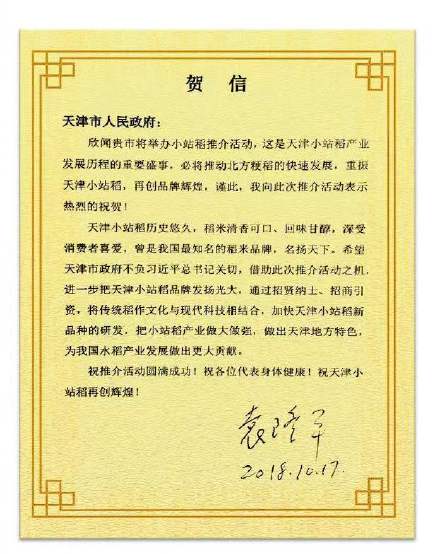 贺信
天津市人民政府：
欣闻贵市将举办小站稻推介活动，这是天津小站稻产业
发展历程的重要盛事，必将推动北方粳稻的快速发展，重振
天津小站稻，再创品牌辉煌，谨此，我向此次推介活动表示
热烈的祝贺！
天津小站稻历史悠久，稻米清香可口、回味甘醇，深受
消费者喜爱，曾是我国最知名的稻米品牌，名扬天下。希望
天津市政府不负习近平总书记关切，借助此次推介活动之机，
进一步把天津小站稻品牌发扬光大，通过招贤纳士、招商引
资，将传统稻作文化与现代科技相结合，加快天津小站稻新
品种的研发，把小站稻产业做大做强，做出天津地方特色，
为我国水稻产业发展做出更大贡献。
祝推介活动圆满成功！祝各位代表身体健康！祝天津小
站稻再创辉煌！
袁隆平
2018.10.17.